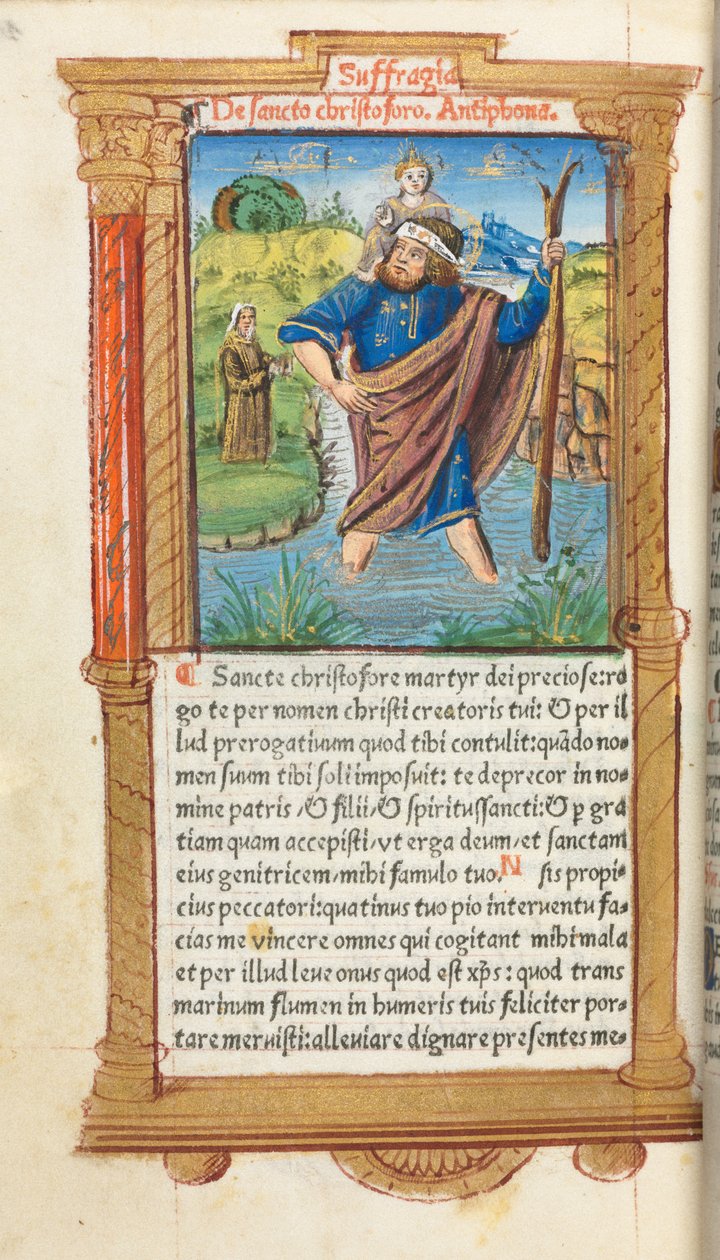 Suffragia
De sancto christoforo. Antiphona.
¶ Sancte christofore martyr dei preciose:ro
go te per nomen christi creatoris tui: & per il
lud prerogatiuum quod tibi contulit:quãdo no-
men suum tibi soli imposuit: te deprecor in no-
mine patris / & filii / & spiritussancti: & ꝑ gra
tiam quam accepisti / vt erga deum / et sanctam
eius genitricem / mihi famulo tuo. N sis propi-
cius peccatori:quatinus tuo pio interuentu fa-
cias me vincere omnes qui cogitant mihi mala
et per illud leue onus quod est xp̃s : quod trans
marinum flumen in humeris tuis feliciter por-
tare meruisti:alleuiare dignare presentes me-